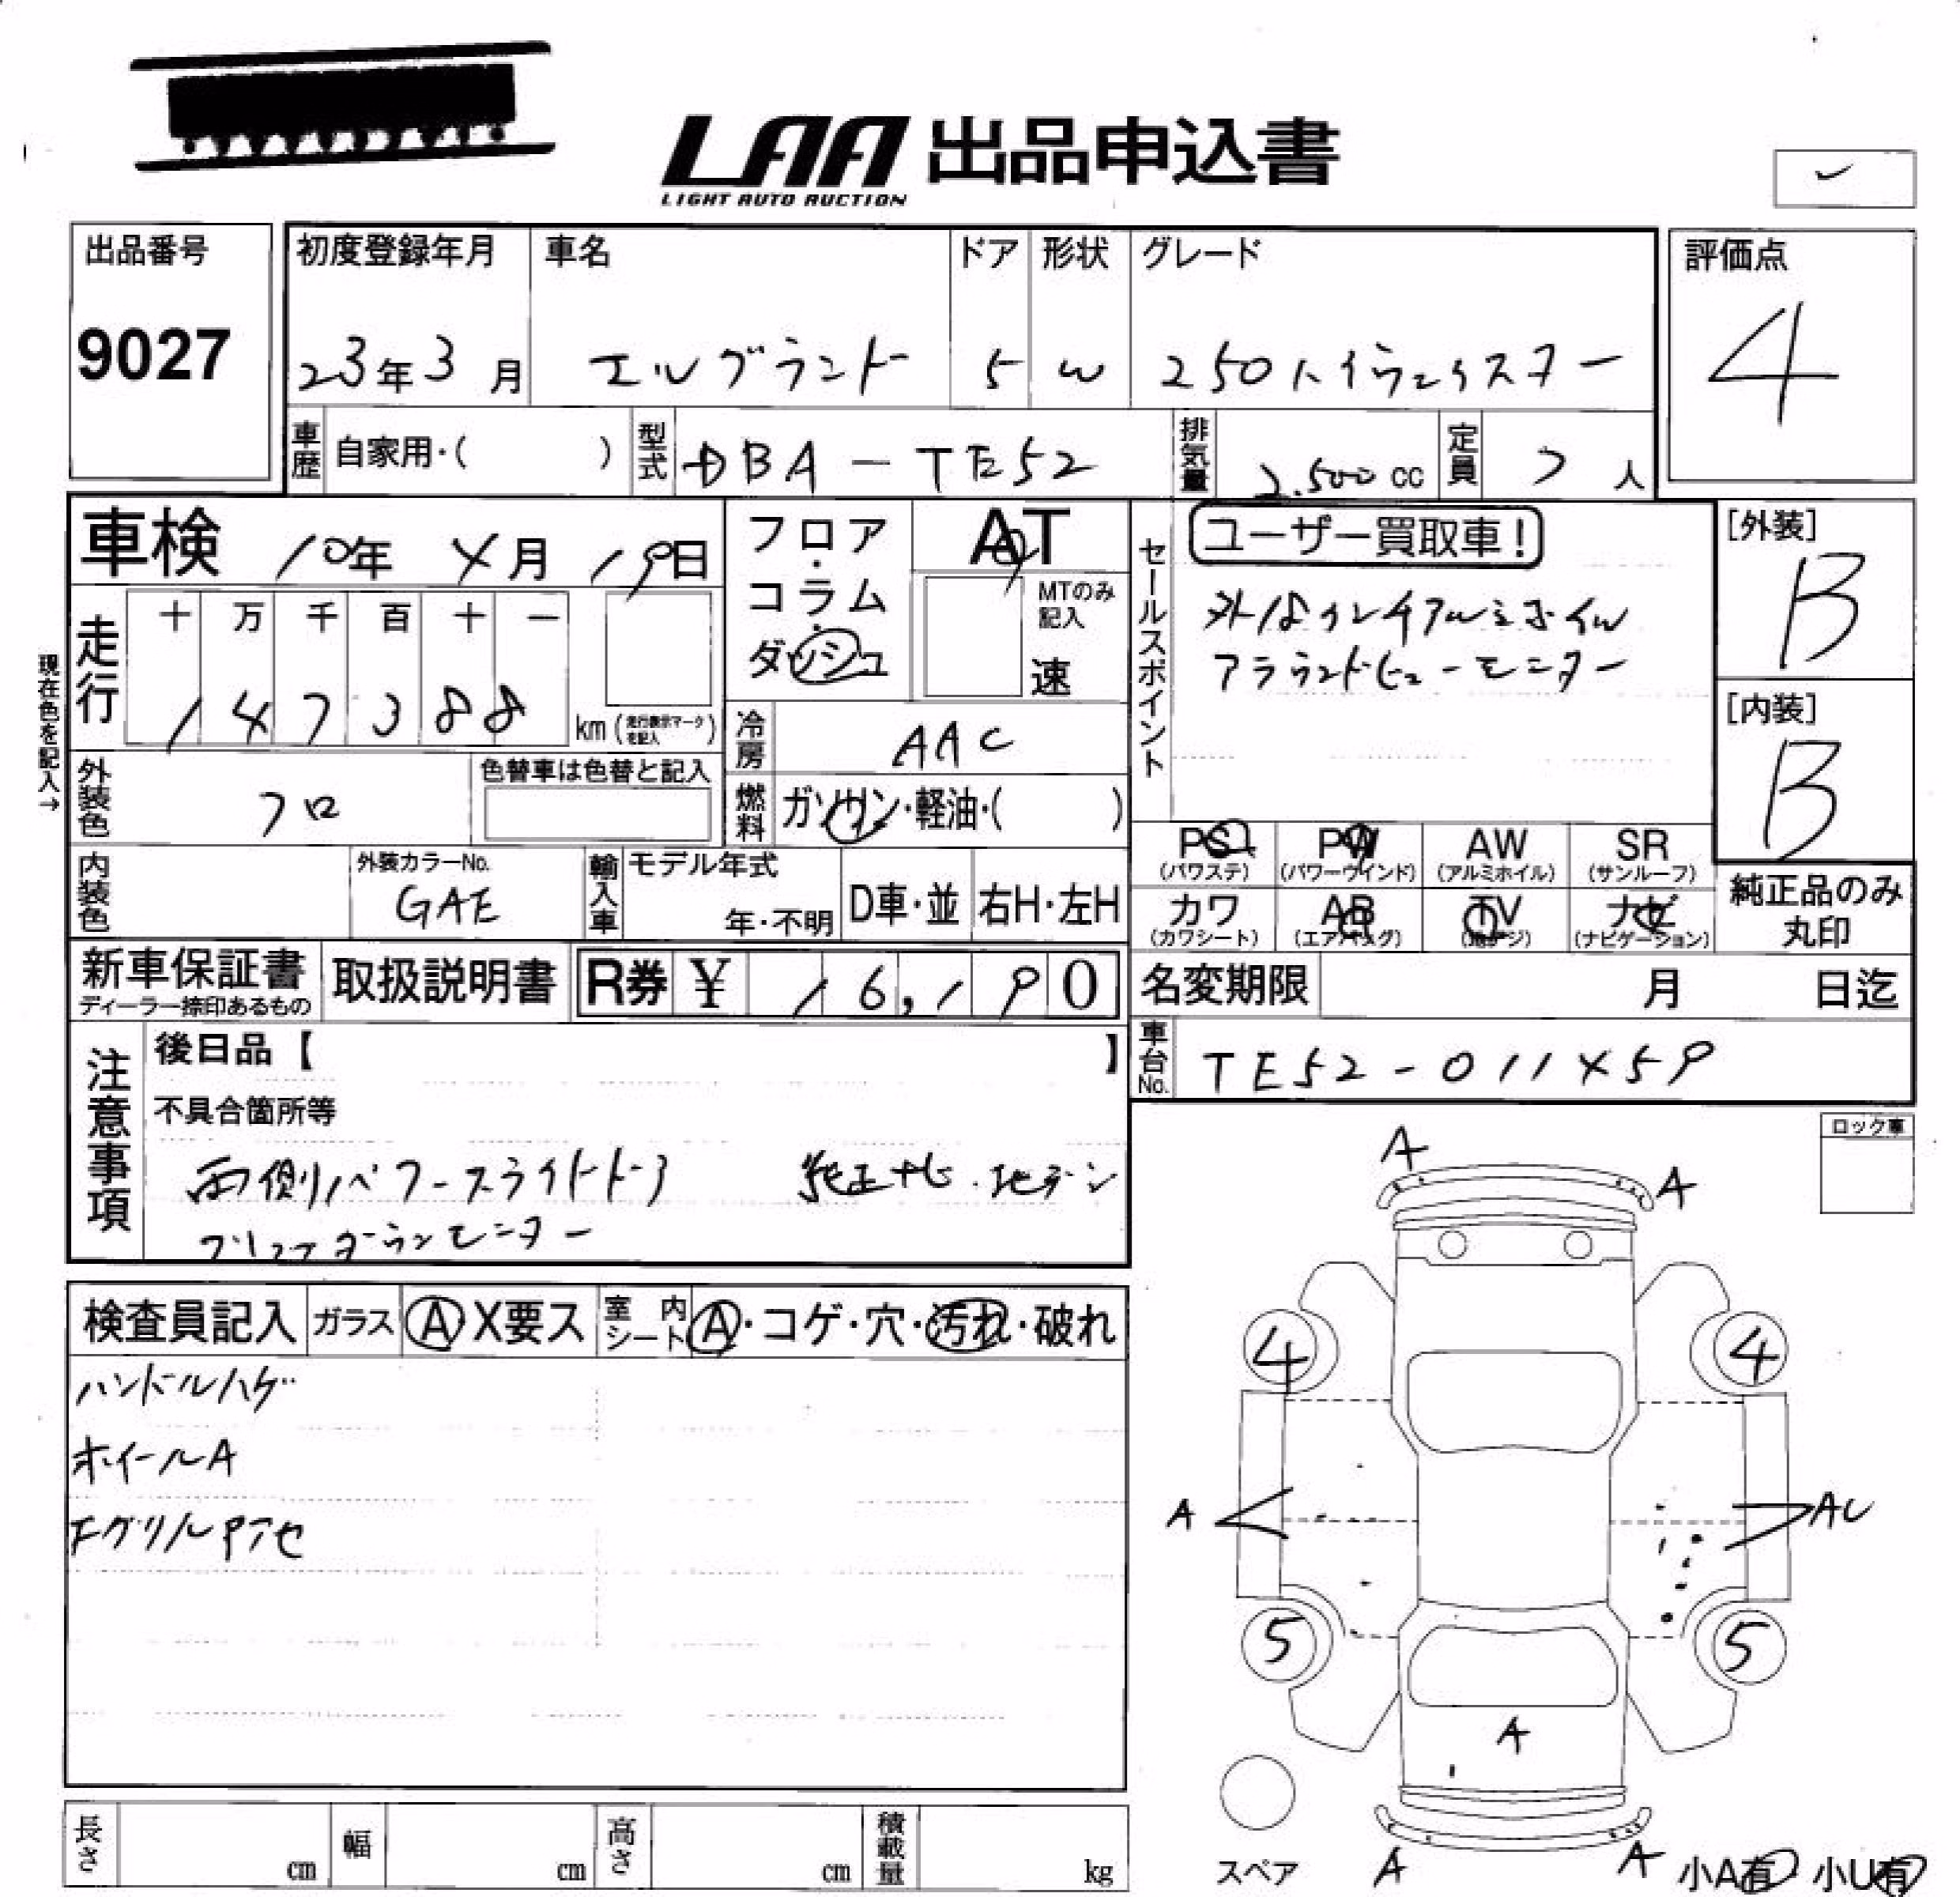 LAA 出品申込書
LIGHT AUTO AUCTION
出品番号
9027
初度登録年月 車名 ドア 形状 グレード
23年3月 エルグランド 5 W 250ハイウェイスター
評価点
4
車歴 自家用・( ) 型式 DBA-TE52 排気量 2.500cc 定員 7人
車検 10年4月19日
フロア・コラム・ダッシュ
AT
MTのみ記入
速
セールスポイント
ユーザー買取車!
アルミホイル
アラウンドビューモニター
[外装]
B
[内装]
B
現在色を記入→
走行 十 万 千 百 十 一
147388 km (走行表示マークを記入)
冷房 AAC
外装色 クロ 色替車は色替と記入
燃料 ガソリン・軽油・( )
内装色 外装カラーNo. GAE
輸入車 モデル年式 年・不明 D車・並 右H・左H
PS (パワステ) PW (パワーウインド) AW (アルミホイル) SR (サンルーフ)
カワ (カワシート) AB (エアバッグ) TV ナビ (ナビゲーション)
純正品のみ丸印
新車保証書 ディーラー捺印あるもの 取扱説明書 R券 ¥ 16,190
名変期限 月 日迄
車台No. TE52-011459
注意事項
後日品【 】
不具合箇所等
両側パワースライドドア 純正ナビ・地デジ
フリップダウンモニター
ロック車
検査員記入 ガラス A X要ス 室内シート A・コゲ・穴・汚れ・破れ
ハンドルハゲ
ホイールA
Fグリル
A
A
4 4
A AU
5 5
A
A A
スペア
小A有 小U有
長さ cm 幅 cm 高さ cm 積載量 kg